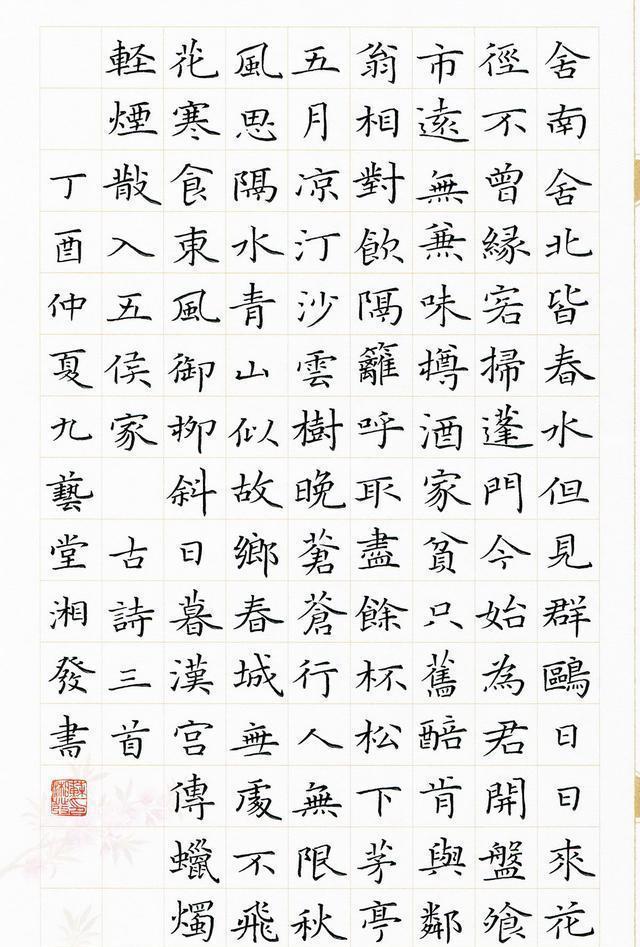 舍南舍北皆春水但見群鷗日日來花
徑不曾緣客掃蓬門今始為君開盤飧
市遠無兼味樽酒家貧只舊醅肯與鄰
翁相對飲隔籬呼取盡餘杯松下茅亭
五月凉汀沙雲樹晚蒼蒼行人無限秋
風思隔水青山似故鄉春城無處不飛
花寒食東風御柳斜日暮漢宮傳蠟燭
軽煙散入五侯家 古詩三首
丁酉仲夏九藝堂湘發書